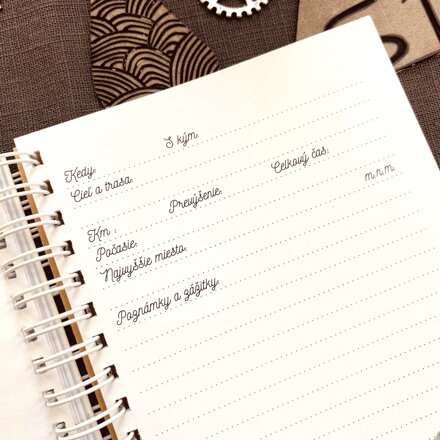 Kedy: S kým:
Cieľ a trasa:
Km : Prevýšenie: Celkový čas:
Počasie:
Najvyššie miesto: m.n.m.
Poznámky a zážitky: